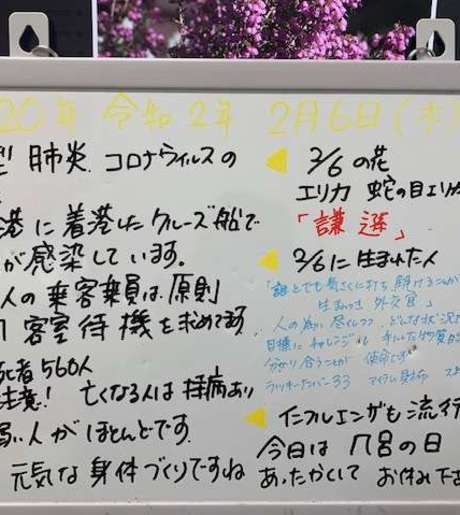 20年 令和2年 2月6日(木
型 肺炎 コロナウィルスの
港に着港したクルーズ船で
が感染しています。
人の乗客乗員は、原則
客室待機を求めてます
死者560人
注意! 亡くなる人は持病あり
弱い人がほとんどです。
元気な身体づくりですね
2/6の花
エリカ 蛇の目エリカ
「謙遜」
2/6に生まれた人
「誰とでも気さくに打ち解けることが
生まれつき 外交官」
目標にチャレンジも
分かり合うことが 使命です
ラッキーナンバー33 アイテム財布
インフルエンザも流行
今日は 風呂の日
あったかくして お休み下さ